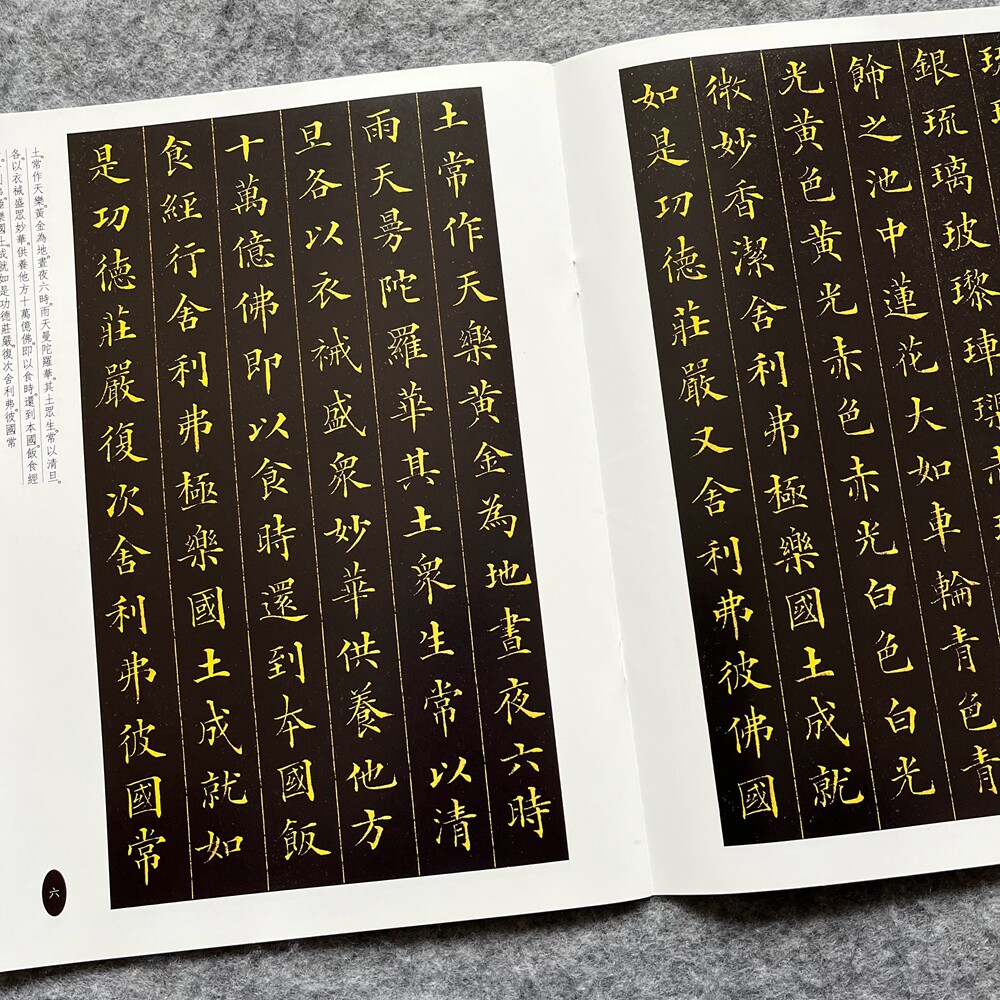 銀琉璃玻瓈
飾之池中蓮花大如車輪青色青
光黄色黄光赤色赤光白色白光
微妙香潔舍利弗極樂國土成就
如是功德莊嚴又舍利弗彼佛國
土常作天樂黄金為地晝夜六時
雨天曼陀羅華其土衆生常以清
旦各以衣祴盛衆妙華供養他方
十萬億佛即以食時還到本國飯
食經行舍利弗極樂國土成就如
是功德莊嚴復次舍利弗彼國常
土。常作天樂。黃金為地。晝夜六時。雨天曼陀羅華。其土眾生。常以清旦。
各以衣祴盛眾妙華。供養他方十萬億佛。即以食時。還到本國。飯食經
樂國土。成就如是功德莊嚴。復次舍利弗。彼國常
六